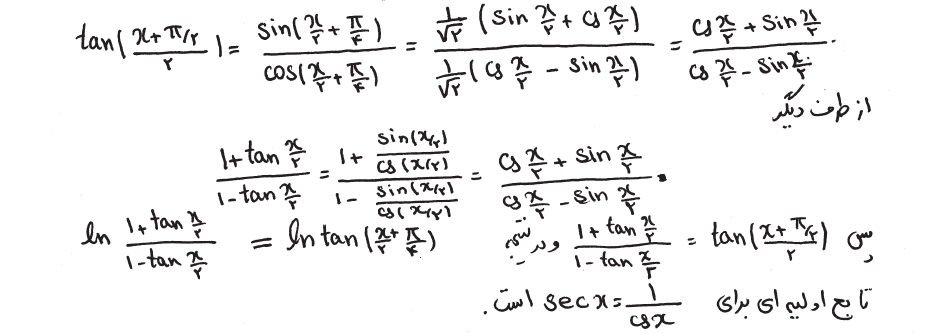 tan(\frac{x+π/۲}{۲}) = \frac{sin(\frac{x}{۲}+\frac{π}{۴})}{cos(\frac{x}{۲}+\frac{π}{۴})} = \frac{\frac{1}{\sqrt{۲}}(sin\frac{x}{۲}+cs\frac{x}{۲})}{\frac{1}{\sqrt{۲}}(cs\frac{x}{۲}-sin\frac{x}{۲})} = \frac{cs\frac{x}{۲}+sin\frac{x}{۲}}{cs\frac{x}{۲}-sin\frac{x}{۲}}.
از طرف دیگر
\frac{1+tan\frac{x}{۲}}{1-tan\frac{x}{۲}} = \frac{1+\frac{sin(x/۲)}{cs(x/۲)}}{1-\frac{sin(x/۲)}{cs(x/۲)}} = \frac{cs\frac{x}{۲}+sin\frac{x}{۲}}{cs\frac{x}{۲}-sin\frac{x}{۲}}.
پس \frac{1+tan\frac{x}{۲}}{1-tan\frac{x}{۲}} = tan(\frac{x+π/۲}{۲}) و در نتیجه ln\frac{1+tan\frac{x}{۲}}{1-tan\frac{x}{۲}} = ln tan(\frac{x}{۲}+\frac{π}{۴})
تابع اولیه ای برای sec x = \frac{1}{cs x} است.